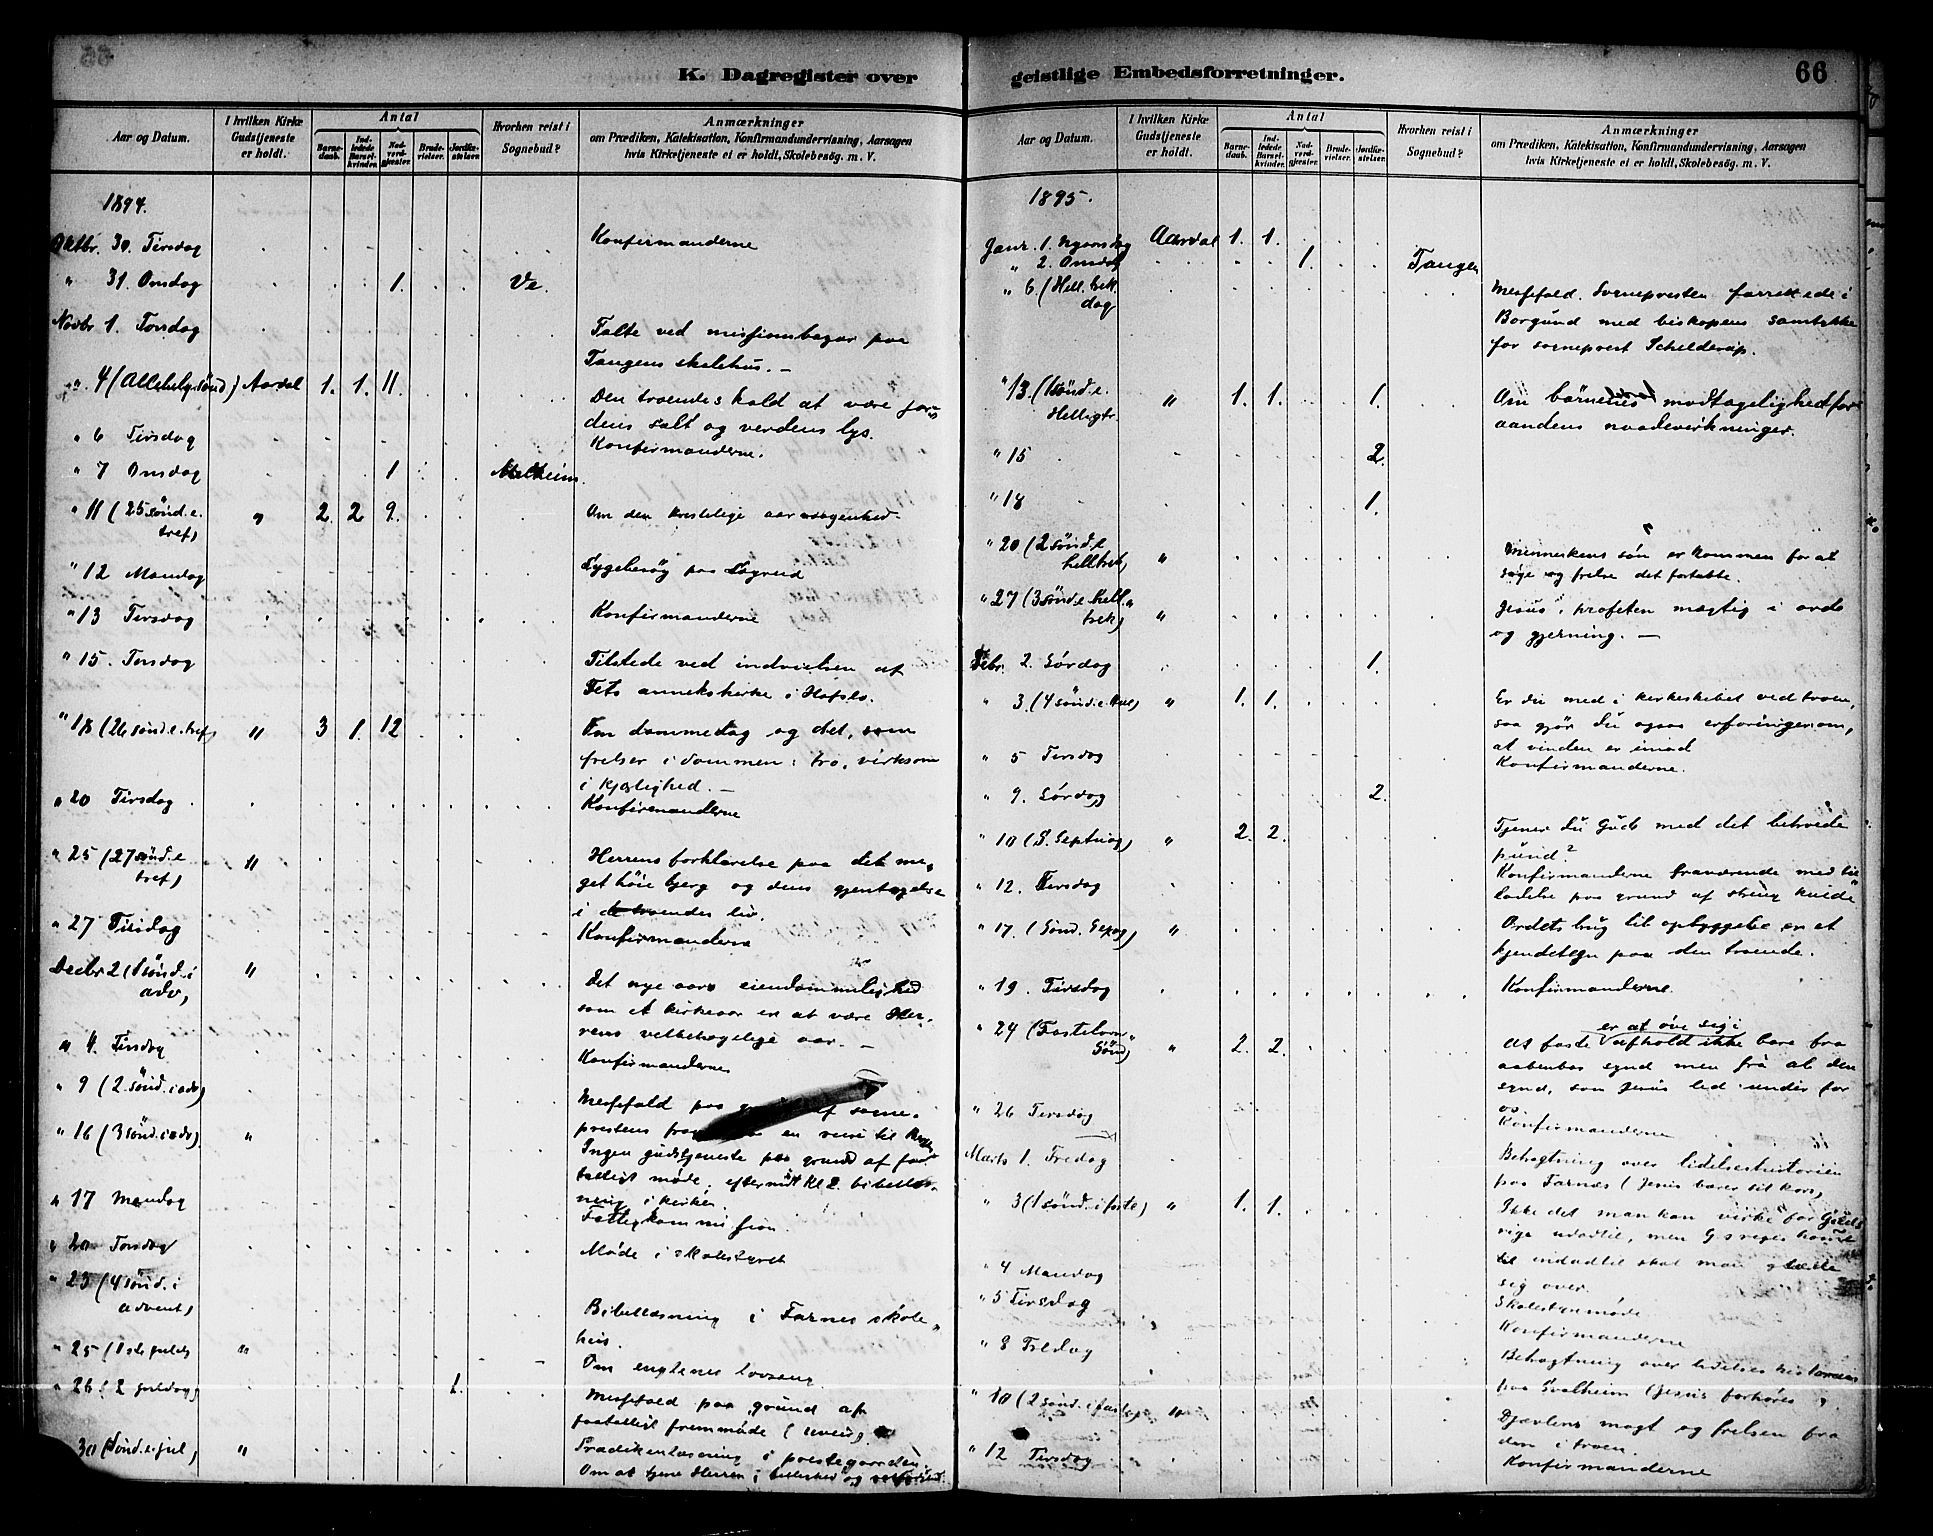 K. Dagregister over
Aar og Datum. I hvilken Kirke Gudstjeneste er holdt. Antal Barne-daab. Ind-ledede Barsel-kvinder. Nad-verd-gjester. Brude-vielser. Jordfæ-stelser. Hvorhen reist i Sognebud? Anmærkninger
om Prædiken, Katekisation, Konfirmandundervisning, Aarsagen
hvis Kirketjeneste ei er holdt, Skolebesög. m. V.
1894.
Oktbr. 30. Tirsdag Konfirmanderne
" 31. Onsdag 1. Ve.
Novbr 1. Torsdag Talte ved missionsbazar paa
Tangens skolehus. —
" 4 (Allehelg. sönd) Aardal 1. 1. 11. Den troendes kald at være jor-
dens salt og verdens lys.
" 6 Tirsdag Konfirmanderne.
" 7 Onsdag 1 Melheim.
" 11 (25 sönd. e. tref) " 2. 2 9. Om den kristelige
" 12 Mandag Sygebesøg paa
" 13 Tirsdag Konfirmanderne
" 15. Torsdag Tilstede ved indvielsen af
Fets annekskirke i Hafslo.
" 18 (26 sønd. e. tref) " 3 1. 12 Om dommedag og det, som
frelser i dommen: tro, virksom
i kjærlighed. —
" 20 Tirsdag Konfirmanderne
" 25 (27 sönd. e tref) " Herrens forklarelse paa det me-
get høie bjerg og dens gjentagelse
i de troendes liv.
" 27 Tirsdag Konfirmanderne
Decbr 2 (1 sönd. i adv) " Det nye aars eiendommelighed
som et kirkeaar er at være Her-
rens velbehagelige aar. —
" 4. Tirsdag Konfirmanderne
" 9 (2. sönd. i adv) Messefald paa af sogne-
prestens en reise til
" 16 (3 sönd. i adv) " Ingen gudstjeneste paa grund af for
møde; kl 2. bibellæs-
ning i kirken.
" 17 Mandag Fattigkommission.
" 20 Torsdag Møde i skolestyret
" 23 (4 sönd. i advent) Bibellæsning i Farnes skole-
hus.
" 25 (1ste juledag) " Om englenes lovsang
" 26 (2 juledag) 1. Messefald paa grund af
faatalligt fremmøde (uveir).
30 (Sönd. e. jul) " Prædikenlæsning i prestegaarden.
Om at tjene Herren i
geistlige Embedsforretninger. 66
Aar og Datum. I hvilken Kirke Gudstjeneste er holdt. Antal Barne-daab. Ind-ledede Barsel-kvinder. Nad-verd-gjester. Brude-vielser. Jordfæ-stelser. Hvorhen reist i Sognebud? Anmærkninger
om Prædiken, Katekisation, Konfirmandundervisning, Aarsagen
hvis Kirketjeneste ei er holdt, Skolebesög. m. V.
1895.
Janr. 1. Nyaarsdag Aardal 1. 1.
" 2. Onsdag 1. Tangen
" 6. (Hell. trek. dag Messefald. Sognepresten forrettede i
Borgund med biskopens samtykke
for sogneprest Schelderup.
" 13. (1 sönd. e. Helligtr. " 1. 1. 1. Om börnenes modtagelighed for
aandens naadevirkninger.
" 15 2.
" 18 1.
" 20 (2 sönd. e helltrek) " Menneskens sön er kommen for at
søge og frelse det fortabte.
" 27 (3 sönd. e. hell. trek) " Jesus, profeten mægtig i ord
og gjerning. —
Febr. 2. Lördag 1.
" 3. (4 sönd. e. hel) " 1. 1. Er du med i kirkeskibet ved troen,
saa gjör du ogsaa erfaringer om,
at vinden er imod
" 5 Tirsdag Konfirmanderne.
" 9. Lördag 2.
" 10 (S. Septuag) " 2. 2. Tjener du Gud med det betroede
pund?
" 12. Tirsdag Konfirmanderne fraværende med til-
ladelse paa grund af streng kulde
" 17. (Sönd. Sexag) " Ordets brug til opbyggelse er et
kjendetegn paa den troende.
" 19. Tirsdag Konfirmanderne.
" 24 (Fastelavns Sönd) " 2. 2. er at öve sig i
At faste afhold ikke bare fra
aabenbar synd men fra al den
synd, som Jesus led under for
os.
" 26 Tirsdag Konfirmanderne
Marts 1. Fredag Betragtning over lidelseshistorien
paa Farnæs (Jesus bærer sit kors)
" 3 (1 sönd. i faste) " 1. 1. Ikke det man kan virke for Guds
rige udadtil, men G.s riges
til indadtil skal man glæde
sig over.
" 4 Mandag Skolestyremöde
" 5 Tirsdag Konfirmanderne
" 8 Fredag Betragtning over lidelseshistorien
paa Svalheim (Jesus forhöres).
" 10 (2 sönd. i faste) " Djævlens magt og frelsen fra
den i troen.
" 12 Tirsdag Konfirmanderne